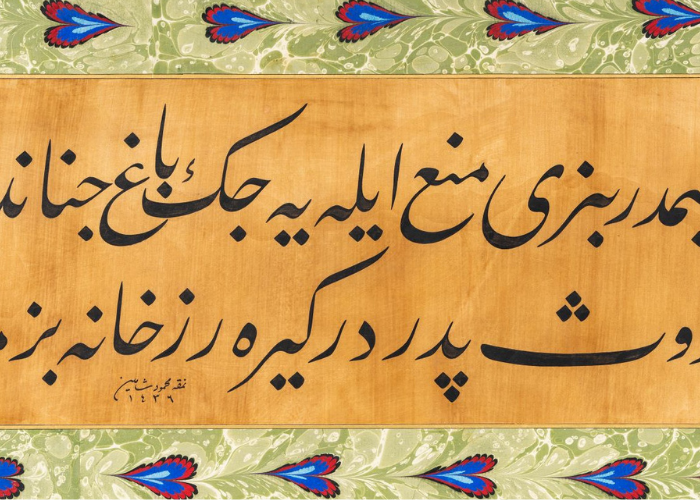 در بزی منع ایله یه جك باغ جناند
وث پدر در گیره رز خانه بز
نمقه محمود شاهین
١٤٣٩